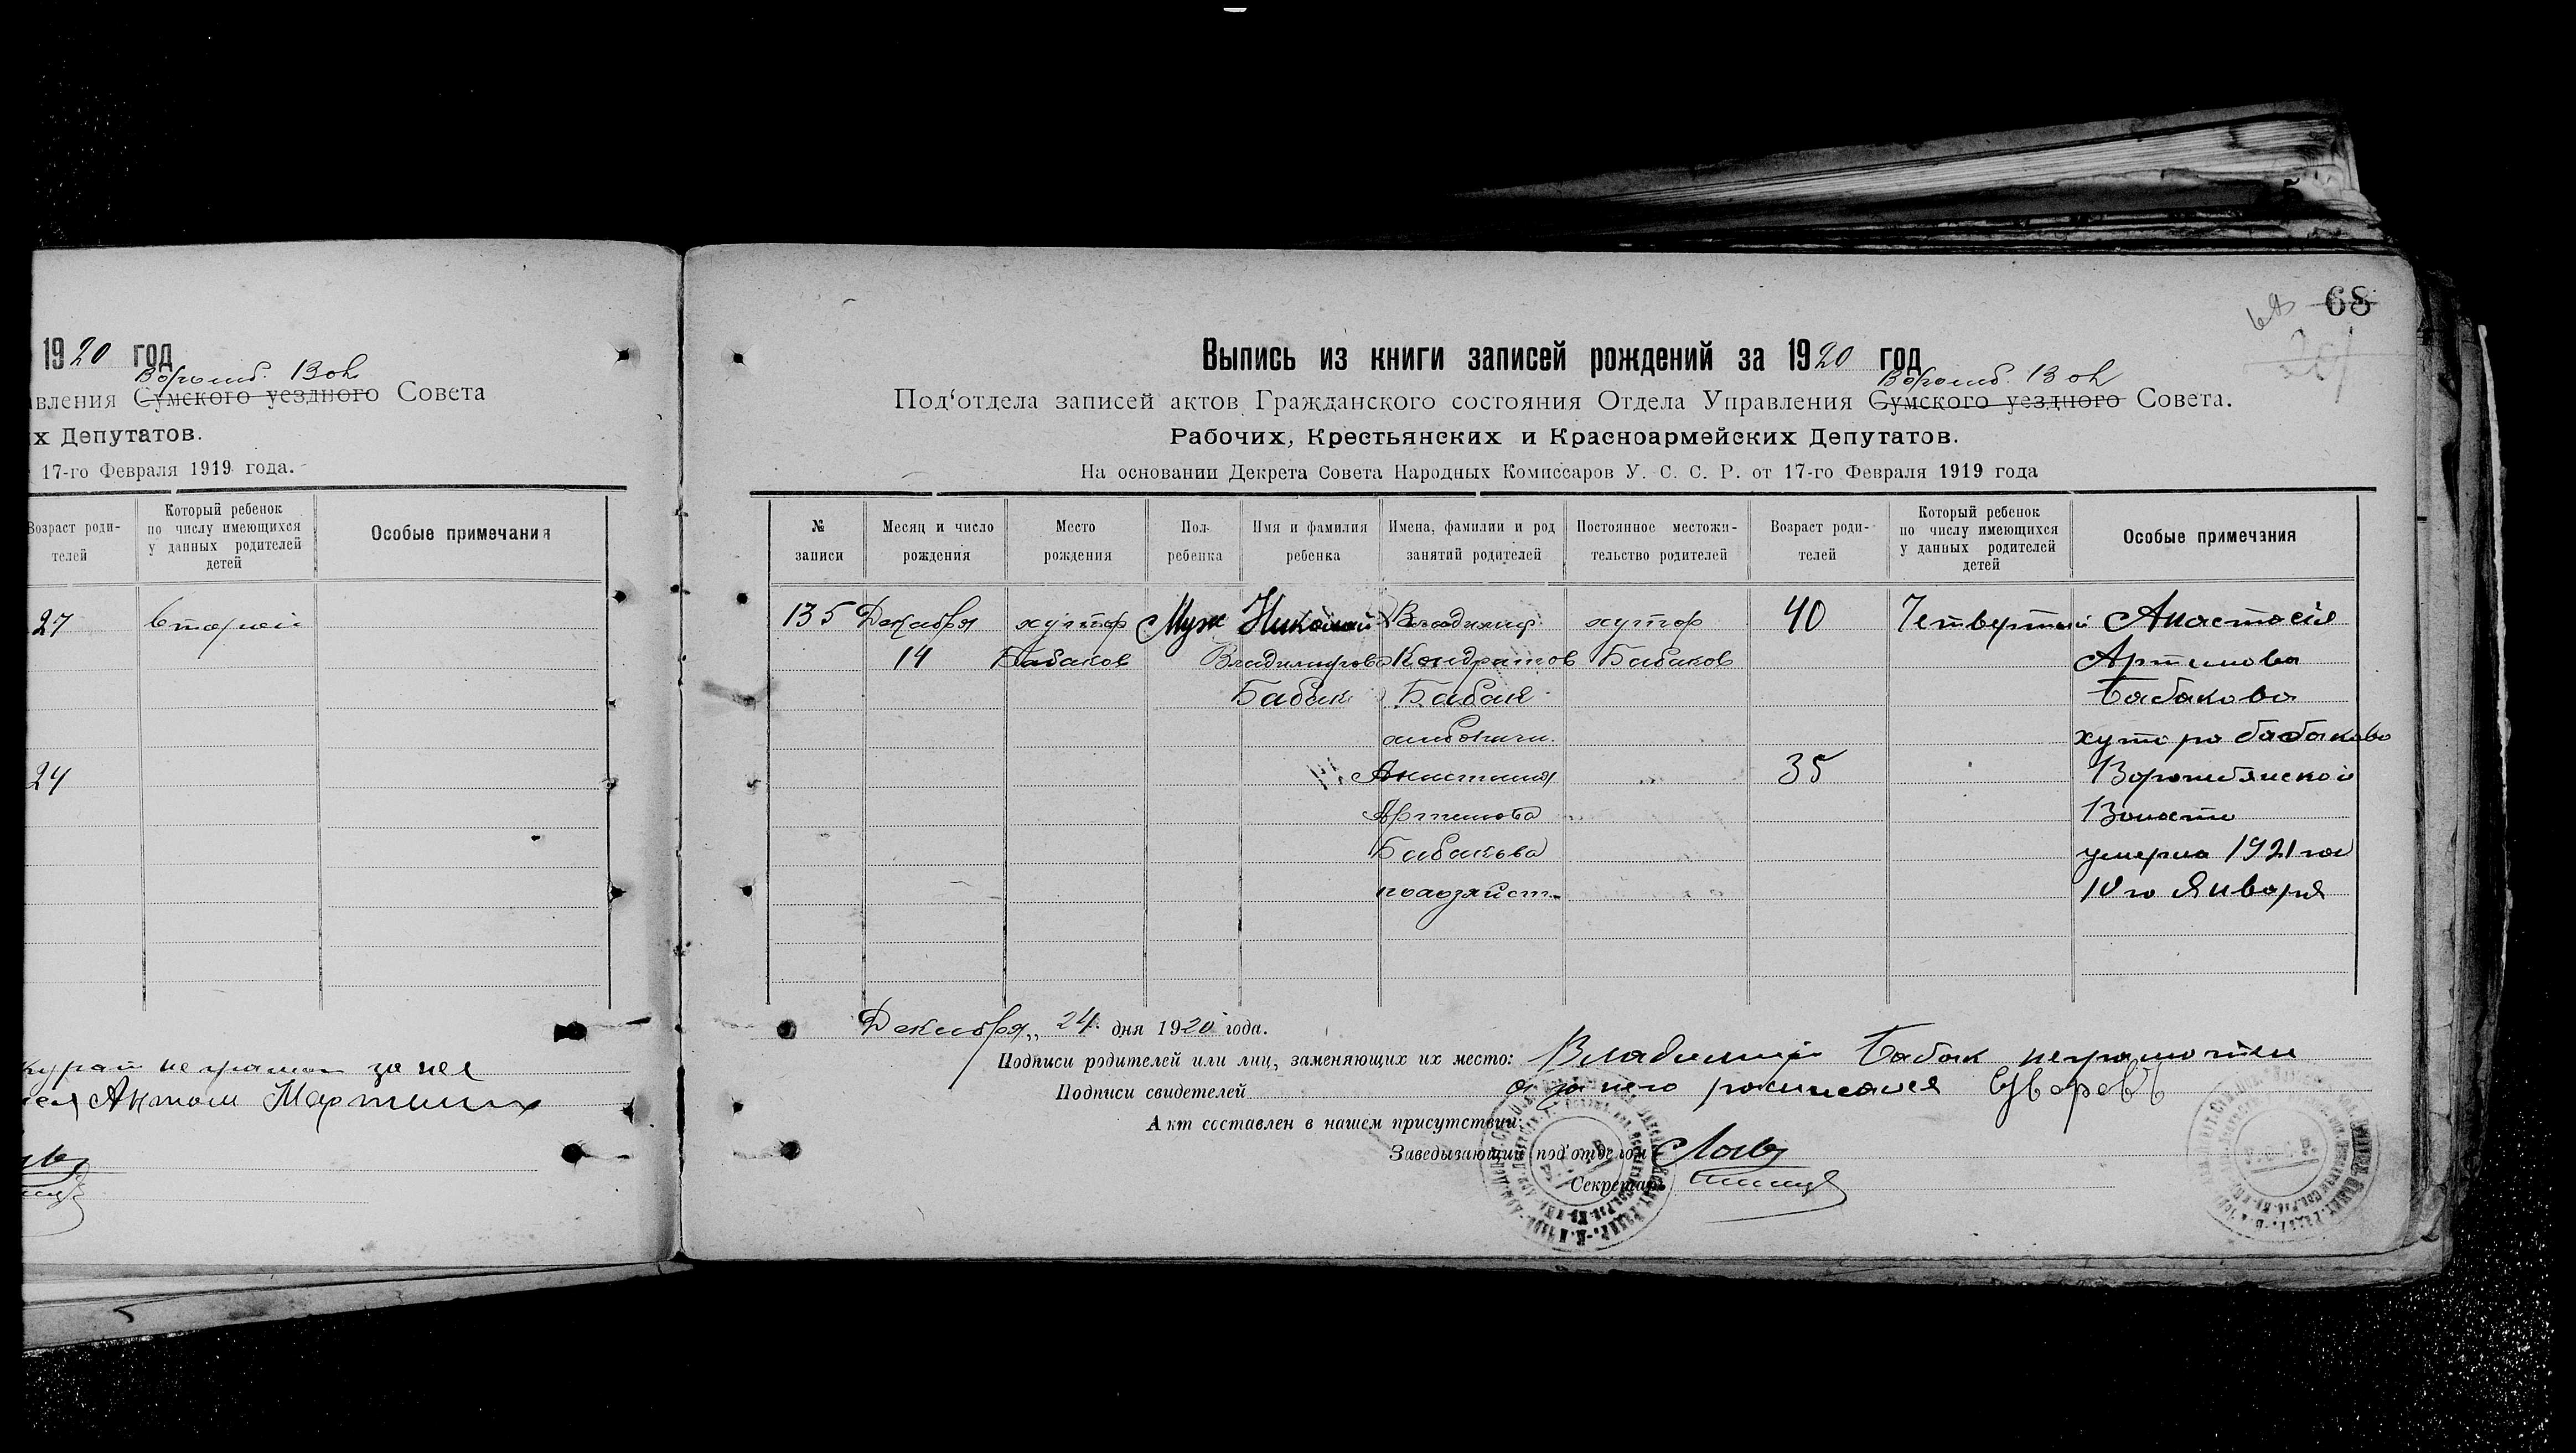 1920 год
Ворожб. Вол.
вления Сумского уездного Совета
х Депутатов.
17-го Февраля 1919 года.
Возраст родителей
Который ребенок по числу имеющихся у данных родителей детей
Особые примечания
27 второй
24
неграмот за нея
Антон Мартин
68
Выпись из книги записей рождений за 1920 год
Ворожб. Вол.
Под‘отдела записей актов Гражданского состояния Отдела Управления Сумского уездного Совета.
Рабочих, Крестьянских и Красноармейских Депутатов.
На основании Декрета Совета Народных Комиссаров У. С. С. Р. от 17-го Февраля 1919 года
№ записи
Месяц и число рождения
Место рождения
Пол ребенка
Имя и фамилия ребенка
Имена, фамилии и род занятий родителей
Постоянное местожительство родителей
Возраст родителей
Который ребенок по числу имеющихся у данных родителей детей
Особые примечания
135 Декабря хутор Муж Николай Владимир хутор 40 Четвертый Анастасія
14 Бабаков Владимиров Кондратов Бабаков Артимова
Бабак Бабак Бабакова
хутора бабаково
Анастасия 35 Ворожбянской
Артемова Волости
Бабакова умерла 1921 год
10 го Января
Декабря 24 дня 1920 года.
Подписи родителей или лиц, заменяющих их место: Владимир Бабак неграмотен
Подписи свидетелей а за него росписался
Акт составлен в нашем присутствии:
Заведывающий под‘отделом
Секретарь